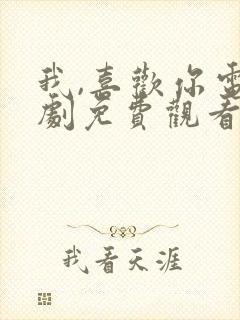 我,喜歡你電
劇免費觀看
我看天涯